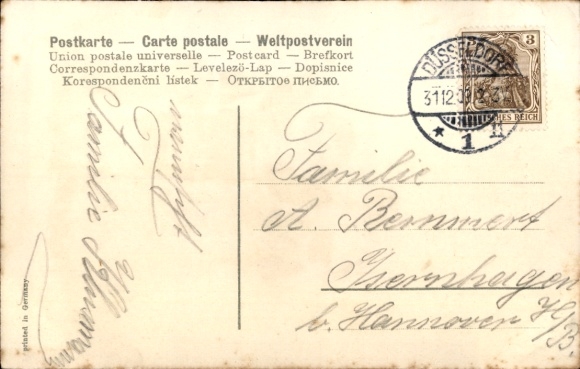 Postkarte — Carte postale — Weltpostverein
Union postale universelle — Postcard — Brefkort
Correspondenzkarte — Levelező-Lap — Dopisnice
Korespondenční lístek — Открытое письмо.
DÜSSELDORF
31.12
* 1 n
3
ES REICH
Familie
A. Bemmert
Isernhagen
b. Hannover H/B.
Familie
printed in Germany